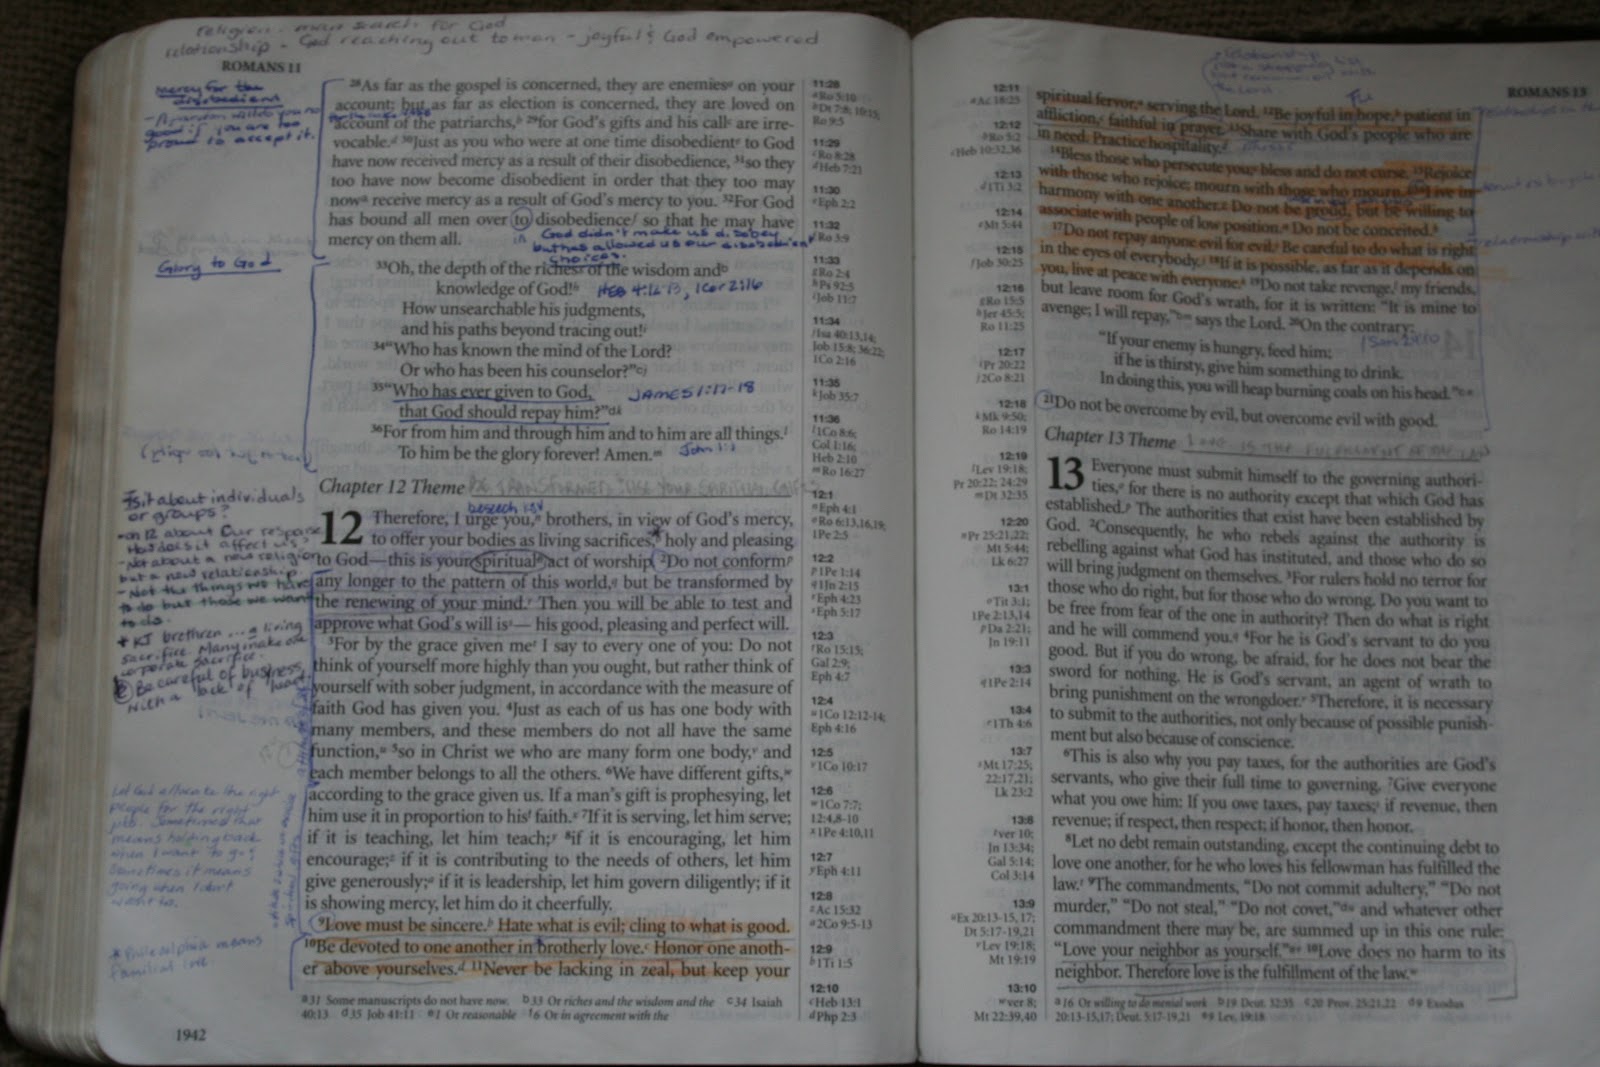 religion - man's search for God
relationship - God reaching out to man - joyful & God empowered
ROMANS 11
mercy for the
disobedient
- A pardon will do you no
good if you are too
proud to accept it.
Glory to God
Is it about individuals
or groups?
- ch 12 about our response
How does it affect us?
- Not about a new religion
but a new relationship.
- Not the things we have
to do but those we want
to do.
* KJ brethren ... a living
sacrifice. Many make one
corporate sacrifice.
Be careful of business
with a lack of heart.
Let God allocate the right
people for the right
job. Sometimes that
means holding back
when I want to go &
sometimes it means
going when I don't
want to.
* Philadelphia means
familial love.
²⁸As far as the gospel is concerned, they are enemiesᵒ on your
account; but as far as election is concerned, they are loved on
account of the patriarchs,ᵇ ²⁹for God's gifts and his callᶜ are irre-
vocable.ᵈ ³⁰Just as you who were at one time disobedientᵉ to God
have now received mercy as a result of their disobedience, ³¹so they
too have now become disobedient in order that they too may
nowᵃ receive mercy as a result of God's mercy to you. ³²For God
has bound all men over to disobedienceᶠ so that he may have
mercy on them all.
in God didn't make us disobey
but has allowed us our disobedient
choices.
³³Oh, the depth of the riches of the wisdom andᵇ
knowledge of God!ʰ Heb 4:12-13, 1Cor 2:16
How unsearchable his judgments,
and his paths beyond tracing out!ⁱ
³⁴"Who has known the mind of the Lord?
Or who has been his counselor?"ᶜʲ
³⁵"Who has ever given to God, JAMES 1:17-18
that God should repay him?"ᵈᵏ
³⁶For from him and through him and to him are all things.ˡ
To him be the glory forever! Amen.ᵐ John 1:1
Chapter 12 Theme BE TRANSFORMED "USE YOUR SPIRITUAL GIFTS
beseech KJV
12 Therefore, I urge you,ⁿ brothers, in view of God's mercy,
to offer your bodies as living sacrifices,ᵒ holy and pleasing
to God—this is your spiritualᵉ act of worship. ²Do not conformᵖ
any longer to the pattern of this world,ᑫ but be transformed by
the renewing of your mind.ʳ Then you will be able to test and
approve what God's will isˢ— his good, pleasing and perfect will.
³For by the grace given meᵗ I say to every one of you: Do not
think of yourself more highly than you ought, but rather think of
yourself with sober judgment, in accordance with the measure of
faith God has given you. ⁴Just as each of us has one body with
many members, and these members do not all have the same
function,ᵘ ⁵so in Christ we who are many form one body,ᵛ and
each member belongs to all the others. ⁶We have different gifts,ʷ
according to the grace given us. If a man's gift is prophesying, let
him use it in proportion to hisᶠ faith.ˣ ⁷If it is serving, let him serve;
if it is teaching, let him teach;ʸ ⁸if it is encouraging, let him
encourage;ᶻ if it is contributing to the needs of others, let him
give generously;ᵃ if it is leadership, let him govern diligently; if it
is showing mercy, let him do it cheerfully.
⁹Love must be sincere.ᵇ Hate what is evil; cling to what is good.
¹⁰Be devoted to one another in brotherly love.ᶜ Honor one anoth-
er above yourselves.ᵈ ¹¹Never be lacking in zeal, but keep your
ᵃ31 Some manuscripts do not have now. ᵇ33 Or riches and the wisdom and the ᶜ34 Isaiah
40:13 ᵈ35 Job 41:11 ᵉ1 Or reasonable ᶠ6 Or in agreement with the
1942
11:28
ⁿRo 5:10
ᵇDt 7:8; 10:15;
Ro 9:5
11:29
ᶜRo 8:28
ᵈHeb 7:21
11:30
ᵉEph 2:2
11:32
ᶠRo 3:9
11:33
ᵍRo 2:4
ʰPs 92:5
ⁱJob 11:7
11:34
ʲIsa 40:13,14;
Job 15:8; 36:22;
1Co 2:16
11:35
ᵏJob 35:7
11:36
ˡ1Co 8:6;
Col 1:16;
Heb 2:10
ᵐRo 16:27
12:1
ⁿEph 4:1
ᵒRo 6:13,16,19;
1Pe 2:5
12:2
ᵖ1Pe 1:14
ᑫ1Jn 2:15
ʳEph 4:23
ˢEph 5:17
12:3
ᵗRo 15:15;
Gal 2:9;
Eph 4:7
12:4
ᵘ1Co 12:12-14;
Eph 4:16
12:5
ᵛ1Co 10:17
12:6
ʷ1Co 7:7;
12:4,8-10
ˣ1Pe 4:10,11
12:7
ʸEph 4:11
12:8
ᶻAc 15:32
ᵃ2Co 9:5-13
12:9
ᵇ1Ti 1:5
12:10
ᶜHeb 13:1
ᵈPhp 2:3
12:11
ᵉAc 18:25
12:12
ᶠRo 5:2
ᵍHeb 10:32,36
12:13
ᵈ1Ti 3:2
12:14
ᵉMt 5:44
12:15
ᶠJob 30:25
12:16
ᵍRo 15:5
ʰJer 45:5;
Ro 11:25
12:17
ⁱPr 20:22
ʲ2Co 8:21
12:18
ᵏMk 9:50;
Ro 14:19
12:19
ˡLev 19:18;
Pr 20:22; 24:29
ᵐDt 32:35
12:20
ⁿPr 25:21,22;
Mt 5:44;
Lk 6:27
13:1
ᵒTit 3:1;
1Pe 2:13,14
ᵖDa 2:21;
Jn 19:11
13:3
ᑫ1Pe 2:14
13:4
ʳ1Th 4:6
13:7
ˢMt 17:25;
22:17,21;
Lk 23:2
13:8
ᵗver 10;
Jn 13:34;
Gal 5:14;
Col 3:14
13:9
ᵘEx 20:13-15, 17;
Dt 5:17-19,21
ᵛLev 19:18;
Mt 19:19
13:10
ʷver 8;
Mt 22:39,40
ROMANS 13
spiritual fervor,ᵃ serving the Lord. ¹²Be joyful in hope,ᵇ patient in
affliction,ᶜ faithful in prayer. ¹³Share with God's people who are
in need. Practice hospitality.ᵈ
¹⁴Bless those who persecute you;ᵉ bless and do not curse. ¹⁵Rejoice
with those who rejoice; mourn with those who mourn.ᶠ ¹⁶Live in
harmony with one another.ᵍ Do not be proud, but be willing to
associate with people of low position.ᵃ Do not be conceited.ʰ
¹⁷Do not repay anyone evil for evil.ⁱ Be careful to do what is right
in the eyes of everybody.ʲ ¹⁸If it is possible, as far as it depends on
you, live at peace with everyone.ᵏ ¹⁹Do not take revenge,ˡ my friends,
but leave room for God's wrath, for it is written: "It is mine to
avenge; I will repay,"ᵇᵐ says the Lord. ²⁰On the contrary:
"If your enemy is hungry, feed him;
if he is thirsty, give him something to drink.
In doing this, you will heap burning coals on his head."ᶜⁿ
²¹Do not be overcome by evil, but overcome evil with good.
Chapter 13 Theme LOVE IS THE FULFILLMENT OF THE LAW
13 Everyone must submit himself to the governing authori-
ties,ᵒ for there is no authority except that which God has
established.ᵖ The authorities that exist have been established by
God. ²Consequently, he who rebels against the authority is
rebelling against what God has instituted, and those who do so
will bring judgment on themselves. ³For rulers hold no terror for
those who do right, but for those who do wrong. Do you want to
be free from fear of the one in authority? Then do what is right
and he will commend you.ᑫ ⁴For he is God's servant to do you
good. But if you do wrong, be afraid, for he does not bear the
sword for nothing. He is God's servant, an agent of wrath to
bring punishment on the wrongdoer.ʳ ⁵Therefore, it is necessary
to submit to the authorities, not only because of possible punish-
ment but also because of conscience.
⁶This is also why you pay taxes, for the authorities are God's
servants, who give their full time to governing. ⁷Give everyone
what you owe him: If you owe taxes, pay taxes;ˢ if revenue, then
revenue; if respect, then respect; if honor, then honor.
⁸Let no debt remain outstanding, except the continuing debt to
love one another, for he who loves his fellowman has fulfilled the
law.ᵗ ⁹The commandments, "Do not commit adultery," "Do not
murder," "Do not steal," "Do not covet,"ᵈᵘ and whatever other
commandment there may be, are summed up in this one rule:
"Love your neighbor as yourself."ᵉᵛ ¹⁰Love does no harm to its
neighbor. Therefore love is the fulfillment of the law.ʷ
ᵃ16 Or willing to do menial work ᵇ19 Deut. 32:35 ᶜ20 Prov. 25:21,22 ᵈ9 Exodus
20:13-15,17; Deut. 5:17-19,21 ᵉ9 Lev. 19:18